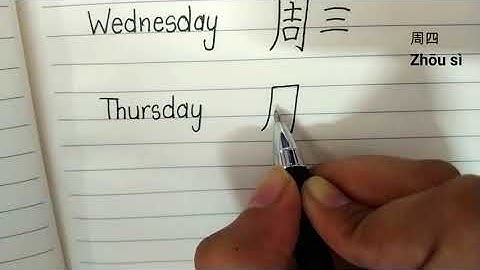 Wednesday 周三
周四
Zhōu sì
Thursday